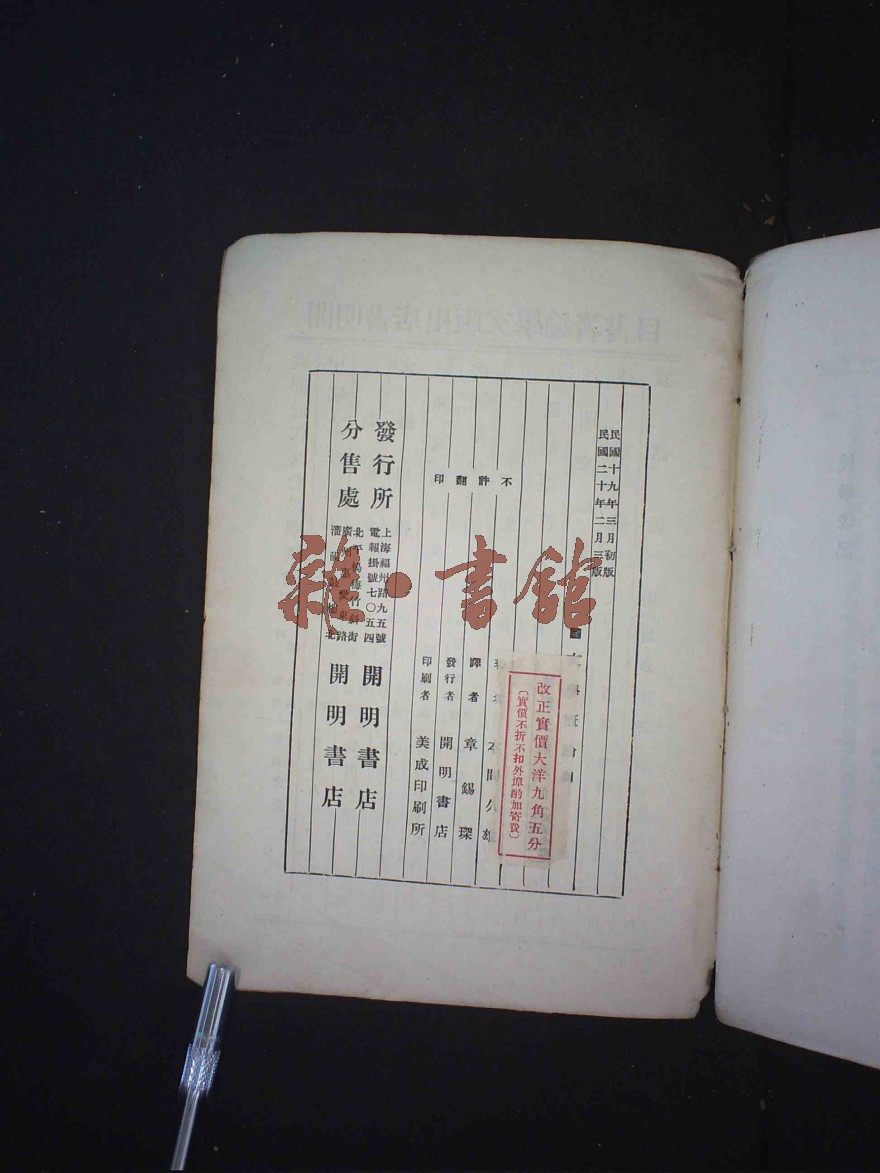 民國十九年三月初版
民國二十年二月三版
改正實價大洋九角五分
〔實價不折不扣外埠酌加寄費〕
不許翻印
譯者 章錫琛
發行者 開明書店
印刷者 美成印刷所
發行所 上海福州路九五號 電報掛號七〇五四 開明書店
分售處 北平楊梅竹斜街 廣州惠愛東路 開明書店
雜·書館